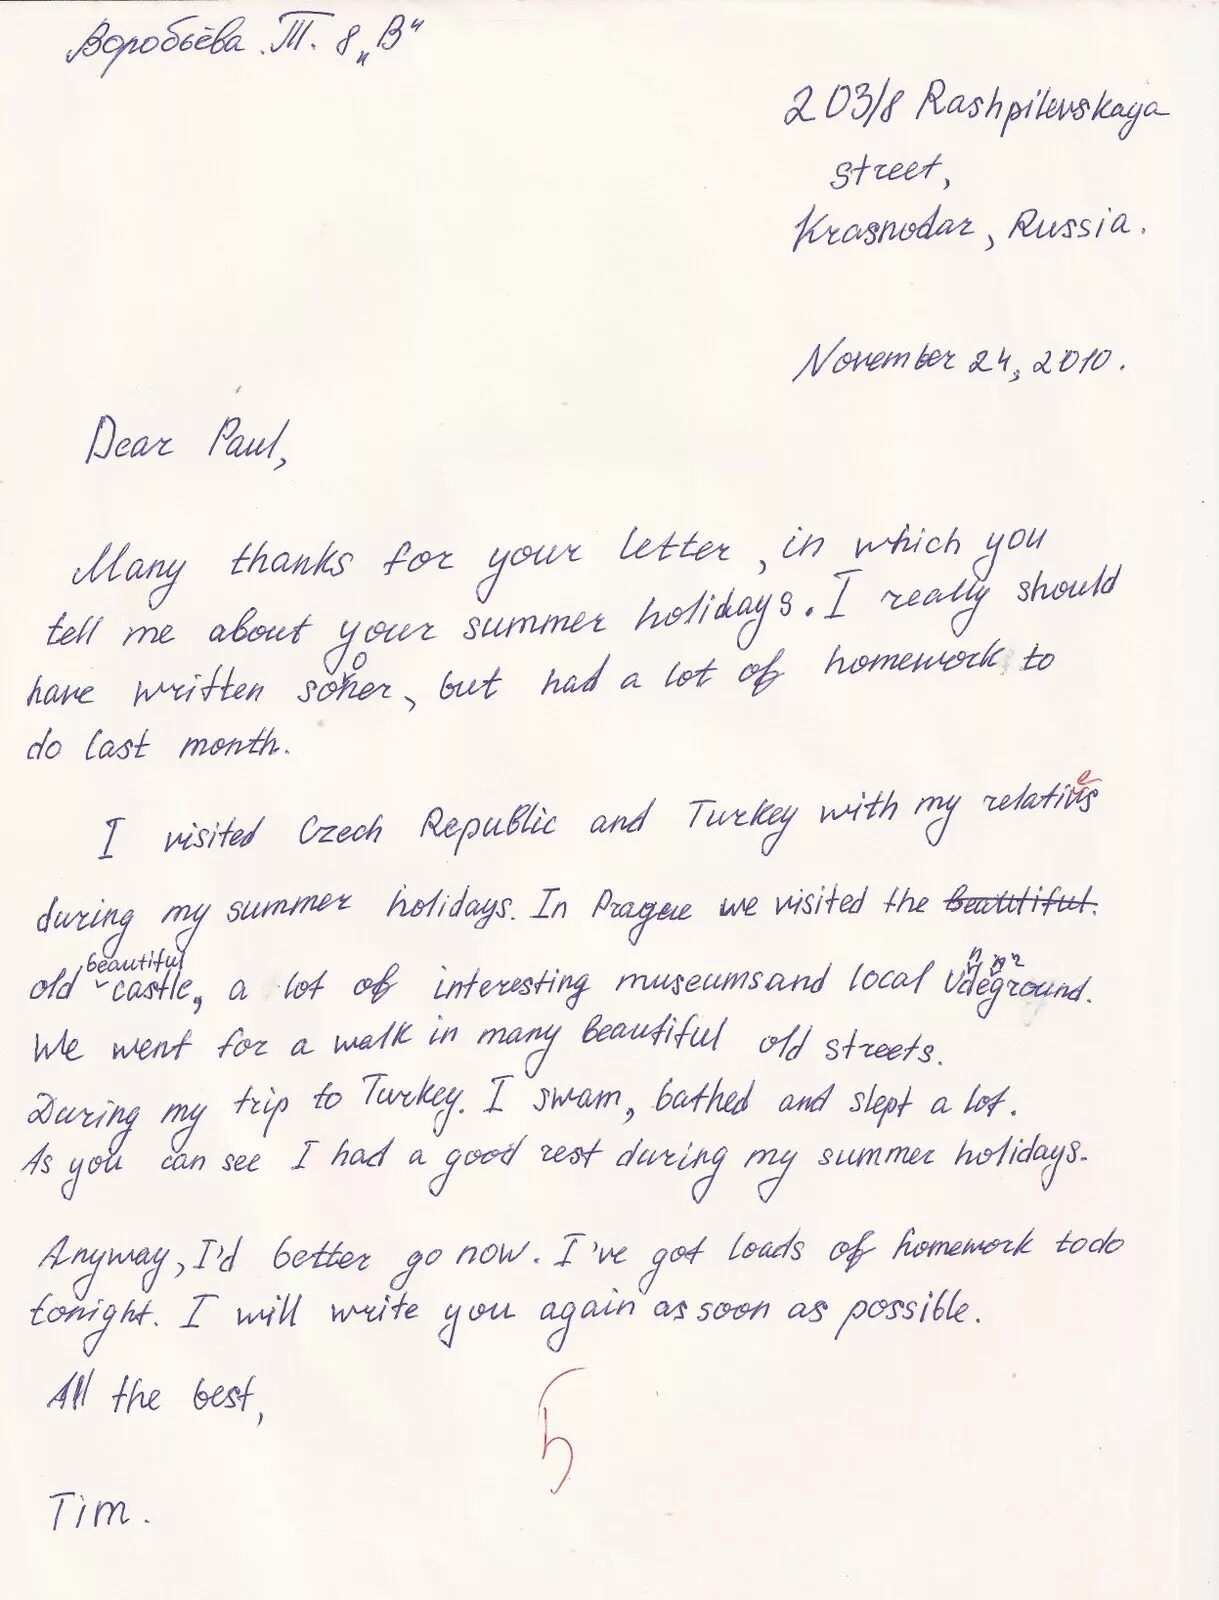 Воробьёва. Т. 8 „В"
203/8 Rashpilevskaya
street,
Krasnodar, Russia.
November 24, 2010.
Dear Paul,
Many thanks for your letter, in which you
tell me about your summer holidays. I really should
have written sooner, but had a lot of homework to
do last month.
I visited Czech Republic and Turkey with my relatives
during my summer holidays. In Prague we visited the beautiful.
old beautiful castle, a lot of interesting museums and local underground.
We went for a walk in many beautiful old streets.
During my trip to Turkey. I swam, bathed and slept a lot.
As you can see I had a good rest during my summer holidays.
Anyway, I'd better go now. I've got loads of homework to do
tonight. I will write you again as soon as possible.
All the best,
5
Tim.